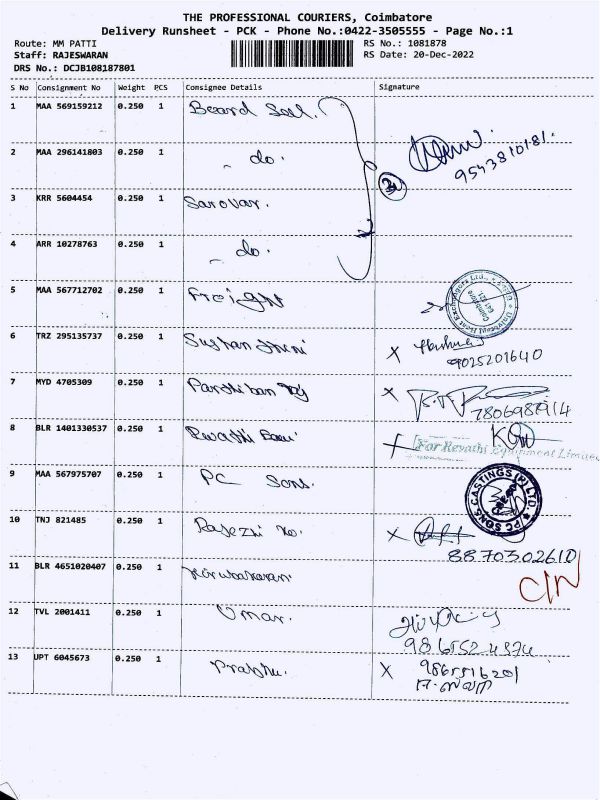 THE PROFESSIONAL COURIERS, Coimbatore
Delivery Runsheet - PCK - Phone No.:0422-3505555 - Page No.:1
Route: MM PATTI RS No.: 1081878
Staff: RAJESWARAN RS Date: 20-Dec-2022
DRS No.: DCJB108187801
S No Consignment No Weight PCS Consignee Details Signature
1 MAA 569159212 0.250 1
2 MAA 296141803 0.250 1 - do.
9543810181.
3 KRR 5604454 0.250 1 Sarovar.
4 ARR 10278763 0.250 1 - do.
5 MAA 567712702 0.250 1 Freight
6 TRZ 295135737 0.250 1 X
9025201640
7 MYD 4705309 0.250 1 Parthiban X
7806987914
8 BLR 1401330537 0.250 1
For Revathi Equipment Limited
9 MAA 567975707 0.250 1 PC Sons. PC SONS CASTINGS (P) LTD.
10 TNJ 821485 0.250 1 X
8870302610
11 BLR 4651020407 0.250 1
12 TVL 2001411 0.250 1 Umar.
9865524374
13 UPT 6045673 0.250 1 Prabhu. X 9865516201